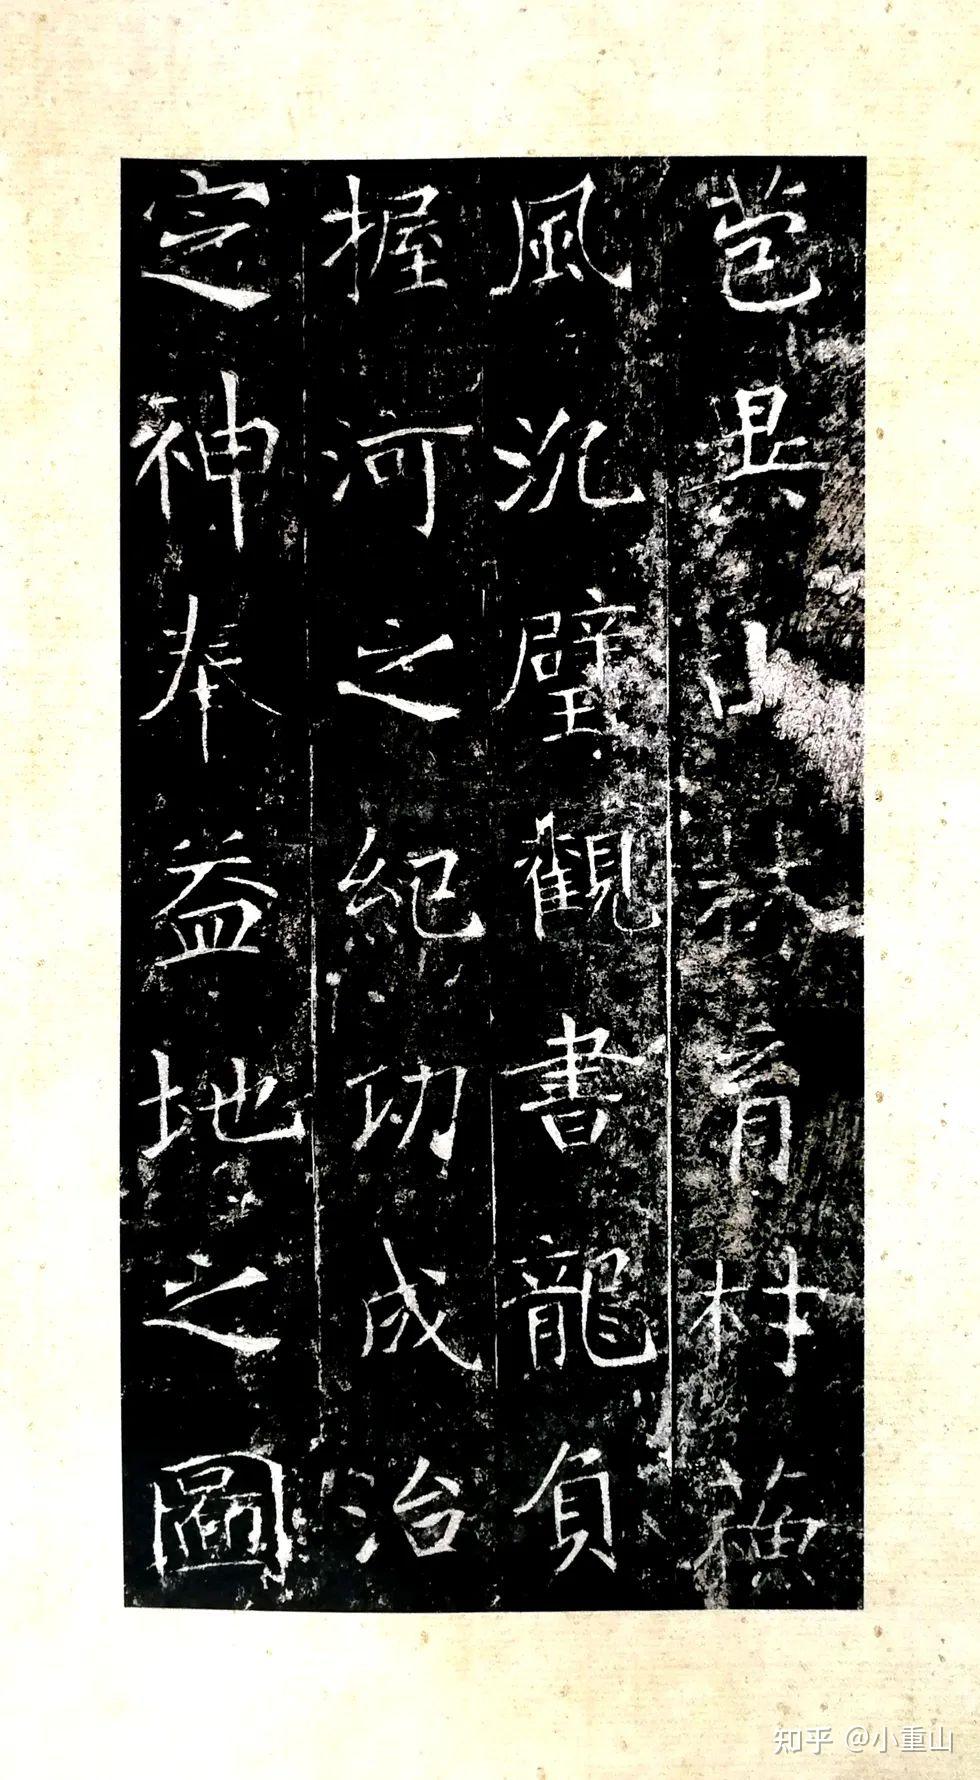 苞異山林育材蘓
風沉璧觀書龍負
握河之紀功成治
定神奉益地之圖
知乎 @小重山